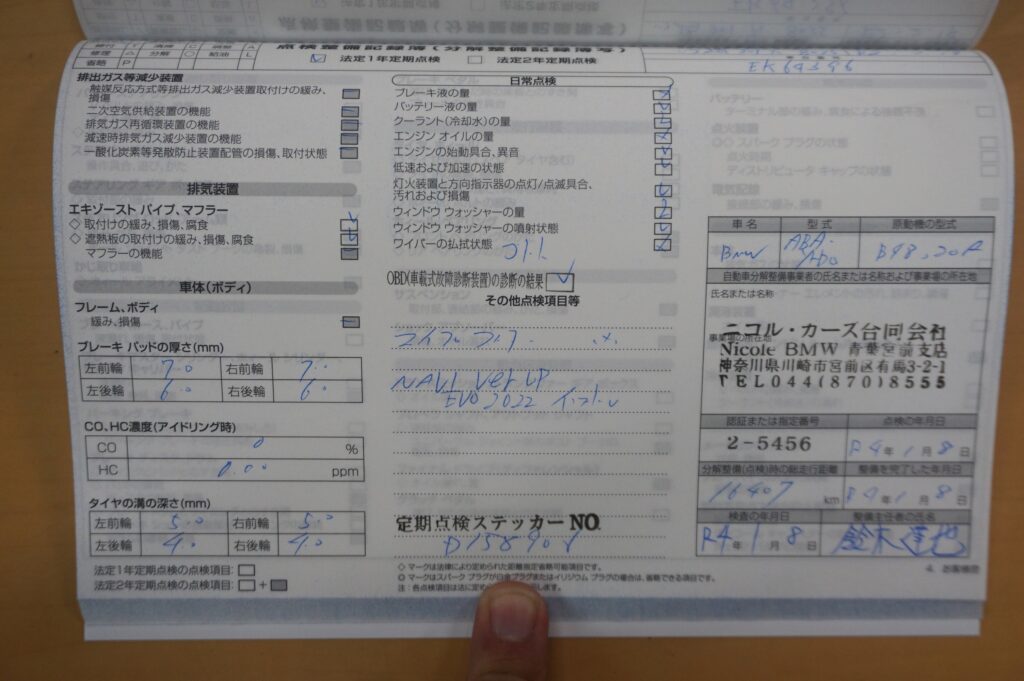 点検整備記録簿(分解整備記録簿写)
法定1年定期点検
法定2年定期点検
省略 P
EK64396
排出ガス等減少装置
触媒反応方式等排出ガス減少装置取付けの緩み、
損傷
二次空気供給装置の機能
排気ガス再循環装置の機能
減速時排気ガス減少装置の機能
一酸化炭素等発散防止装置配管の損傷、取付状態
排気装置
エキゾースト パイプ、マフラー
◇ 取付けの緩み、損傷、腐食
◇ 遮熱板の取付けの緩み、損傷、腐食
マフラーの機能
車体(ボディ)
フレーム、ボディ
緩み、損傷
ブレーキ パッドの厚さ(mm)
左前輪 7.0 右前輪 7.0
左後輪 6.0 右後輪 6.0
CO、HC濃度(アイドリング時)
CO 0 %
HC 0.00 ppm
タイヤの溝の深さ(mm)
左前輪 5.0 右前輪 5.0
左後輪 4.0 右後輪 4.0
法定1年定期点検の点検項目:
法定2年定期点検の点検項目: +
日常点検
ブレーキ液の量
バッテリー液の量
クーラント(冷却水)の量
エンジン オイルの量
エンジンの始動具合、異音
低速および加速の状態
灯火装置と方向指示器の点灯/点滅具合、
汚れおよび損傷
ウィンドウ ウォッシャーの量
ウィンドウ ウォッシャーの噴射状態
ワイパーの払拭状態
OBD(車載式故障診断装置)の診断の結果
その他点検項目等
NAVI Ver UP
EVO 2022
定期点検ステッカー NO.
◇ マークは法律により定められた距離指定省略可能項目です。
◎ マークはスパーク プラグが白金プラグまたはイリジウム プラグの場合は、省略できる項目です。
車名 型式 原動機の型式
BMW ABA- B48.20A
自動車分解整備事業者の氏名または名称および事業場の所在地
氏名または名称
事業場の所在地
ニコル・カーズ合同会社
Nicole BMW 青葉宮前支店
神奈川県川崎市宮前区有馬3-2-1
TEL044(870)8555
認証または指定番号 点検の年月日
2-5456 R4年1月8日
分解整備(点検)時の総走行距離 整備を完了した年月日
16407 km R4年1月8日
検査の年月日 整備主任者の氏名
R4年1月8日 鈴木達也